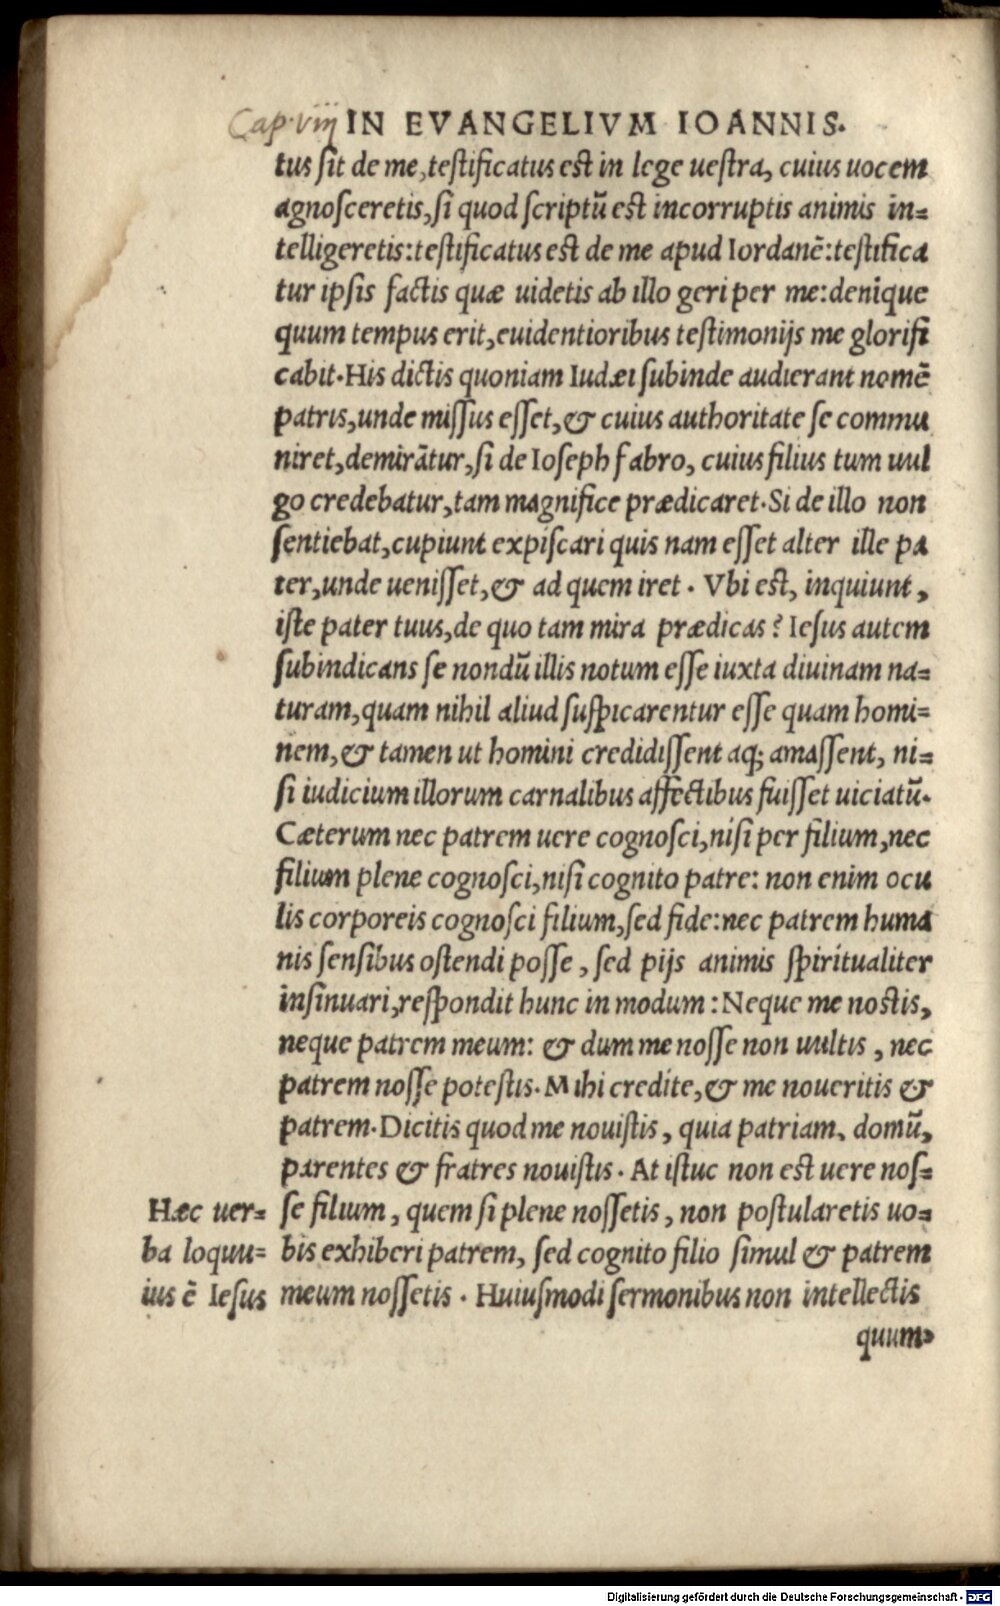 Cap. viij IN EVANGELIVM IOANNIS.
tus sit de me, testificatus est in lege uestra, cuius uocem
agnosceretis, si quod scriptū est incorruptis animis in=
telligeretis: testificatus est de me apud Iordanē: testifica
tur ipsis factis quæ uidetis ab illo geri per me: denique
quum tempus erit, euidentioribus testimonijs me glorifi
cabit. His dictis quoniam Iudæi subinde audierant nomē
patris, unde missus esset, & cuius authoritate se commu
niret, demirātur, si de Ioseph fabro, cuius filius tum uul
go credebatur, tam magnifice prædicaret. Si de illo non
sentiebat, cupiunt expiscari quis nam esset alter ille pa
ter, unde uenisset, & ad quem iret. Vbi est, inquiunt,
iste pater tuus, de quo tam mira prædicas? Iesus autem
subindicans se nondū illis notum esse iuxta diuinam na=
turam, quam nihil aliud suspicarentur esse quam homi=
nem, & tamen ut homini credidissent atq; amassent, ni=
si iudicium illorum carnalibus affectibus fuisset uiciatū.
Cæterum nec patrem uere cognosci, nisi per filium, nec
filium plene cognosci, nisi cognito patre: non enim ocu
lis corporeis cognosci filium, sed fide: nec patrem huma
nis sensibus ostendi posse, sed pijs animis spiritualiter
insinuari, respondit hunc in modum: Neque me nostis,
neque patrem meum: & dum me nosse non uultis, nec
patrem nosse potestis. Mihi credite, & me noueritis &
patrem. Dicitis quod me nouistis, quia patriam, domū,
parentes & fratres nouistis. At istuc non est uere nos=
Hæc uer= se filium, quem si plene nossetis, non postularetis uo=
ba loquu= bis exhiberi patrem, sed cognito filio simul & patrem
ius ē Iesus meum nossetis. Huiusmodi sermonibus non intellectis
quum
Digitalisierung gefördert durch die Deutsche Forschungsgemeinschaft - DFG